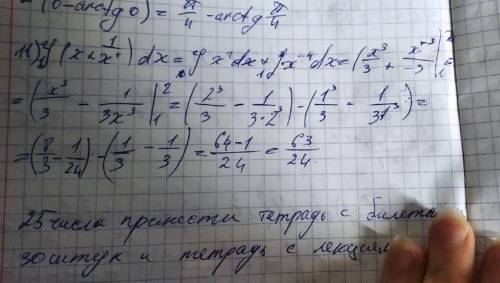 (0-arctg 0) = π/4 - arctg π/4
11) ∫(x + 1/x⁴) dx = ∫ x² dx + ∫ x⁻⁴ dx = (x³/3 + x⁻³/-3)|
= (x³/3 - 1/3x³ |₁² = (2³/3 - 1/3·2³) - (1³/3 - 1/31³) =
= (8/3 - 1/24) - (1/3 - 1/3) = 64-1/24 = 63/24.
25 числа принести тетрадь с билеты
30 штук и тетрадь с лекциям